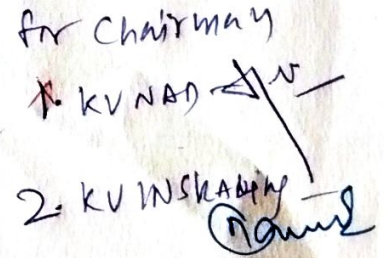 for Chairman
1. KV NAD
2. KV INS Kalinga